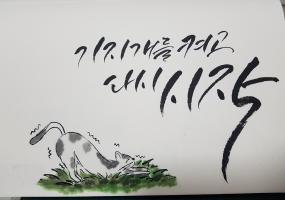 기지개를 켜고
다시 시작